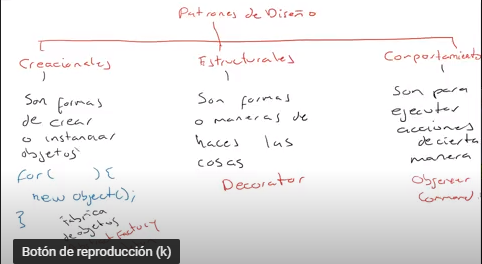 Patrones de Diseño
Creacionales
Son formas
de crear
o instanciar
objetos
for(     ){
new object();
}
fabrica
de objetos
Factory
Estructurales
Son formas
o maneras de
haces las
cosas
Decorator
Comportamiento
Son para
ejecutar
acciones
de cierta
manera
Observer
Command
Botón de reproducción (k)